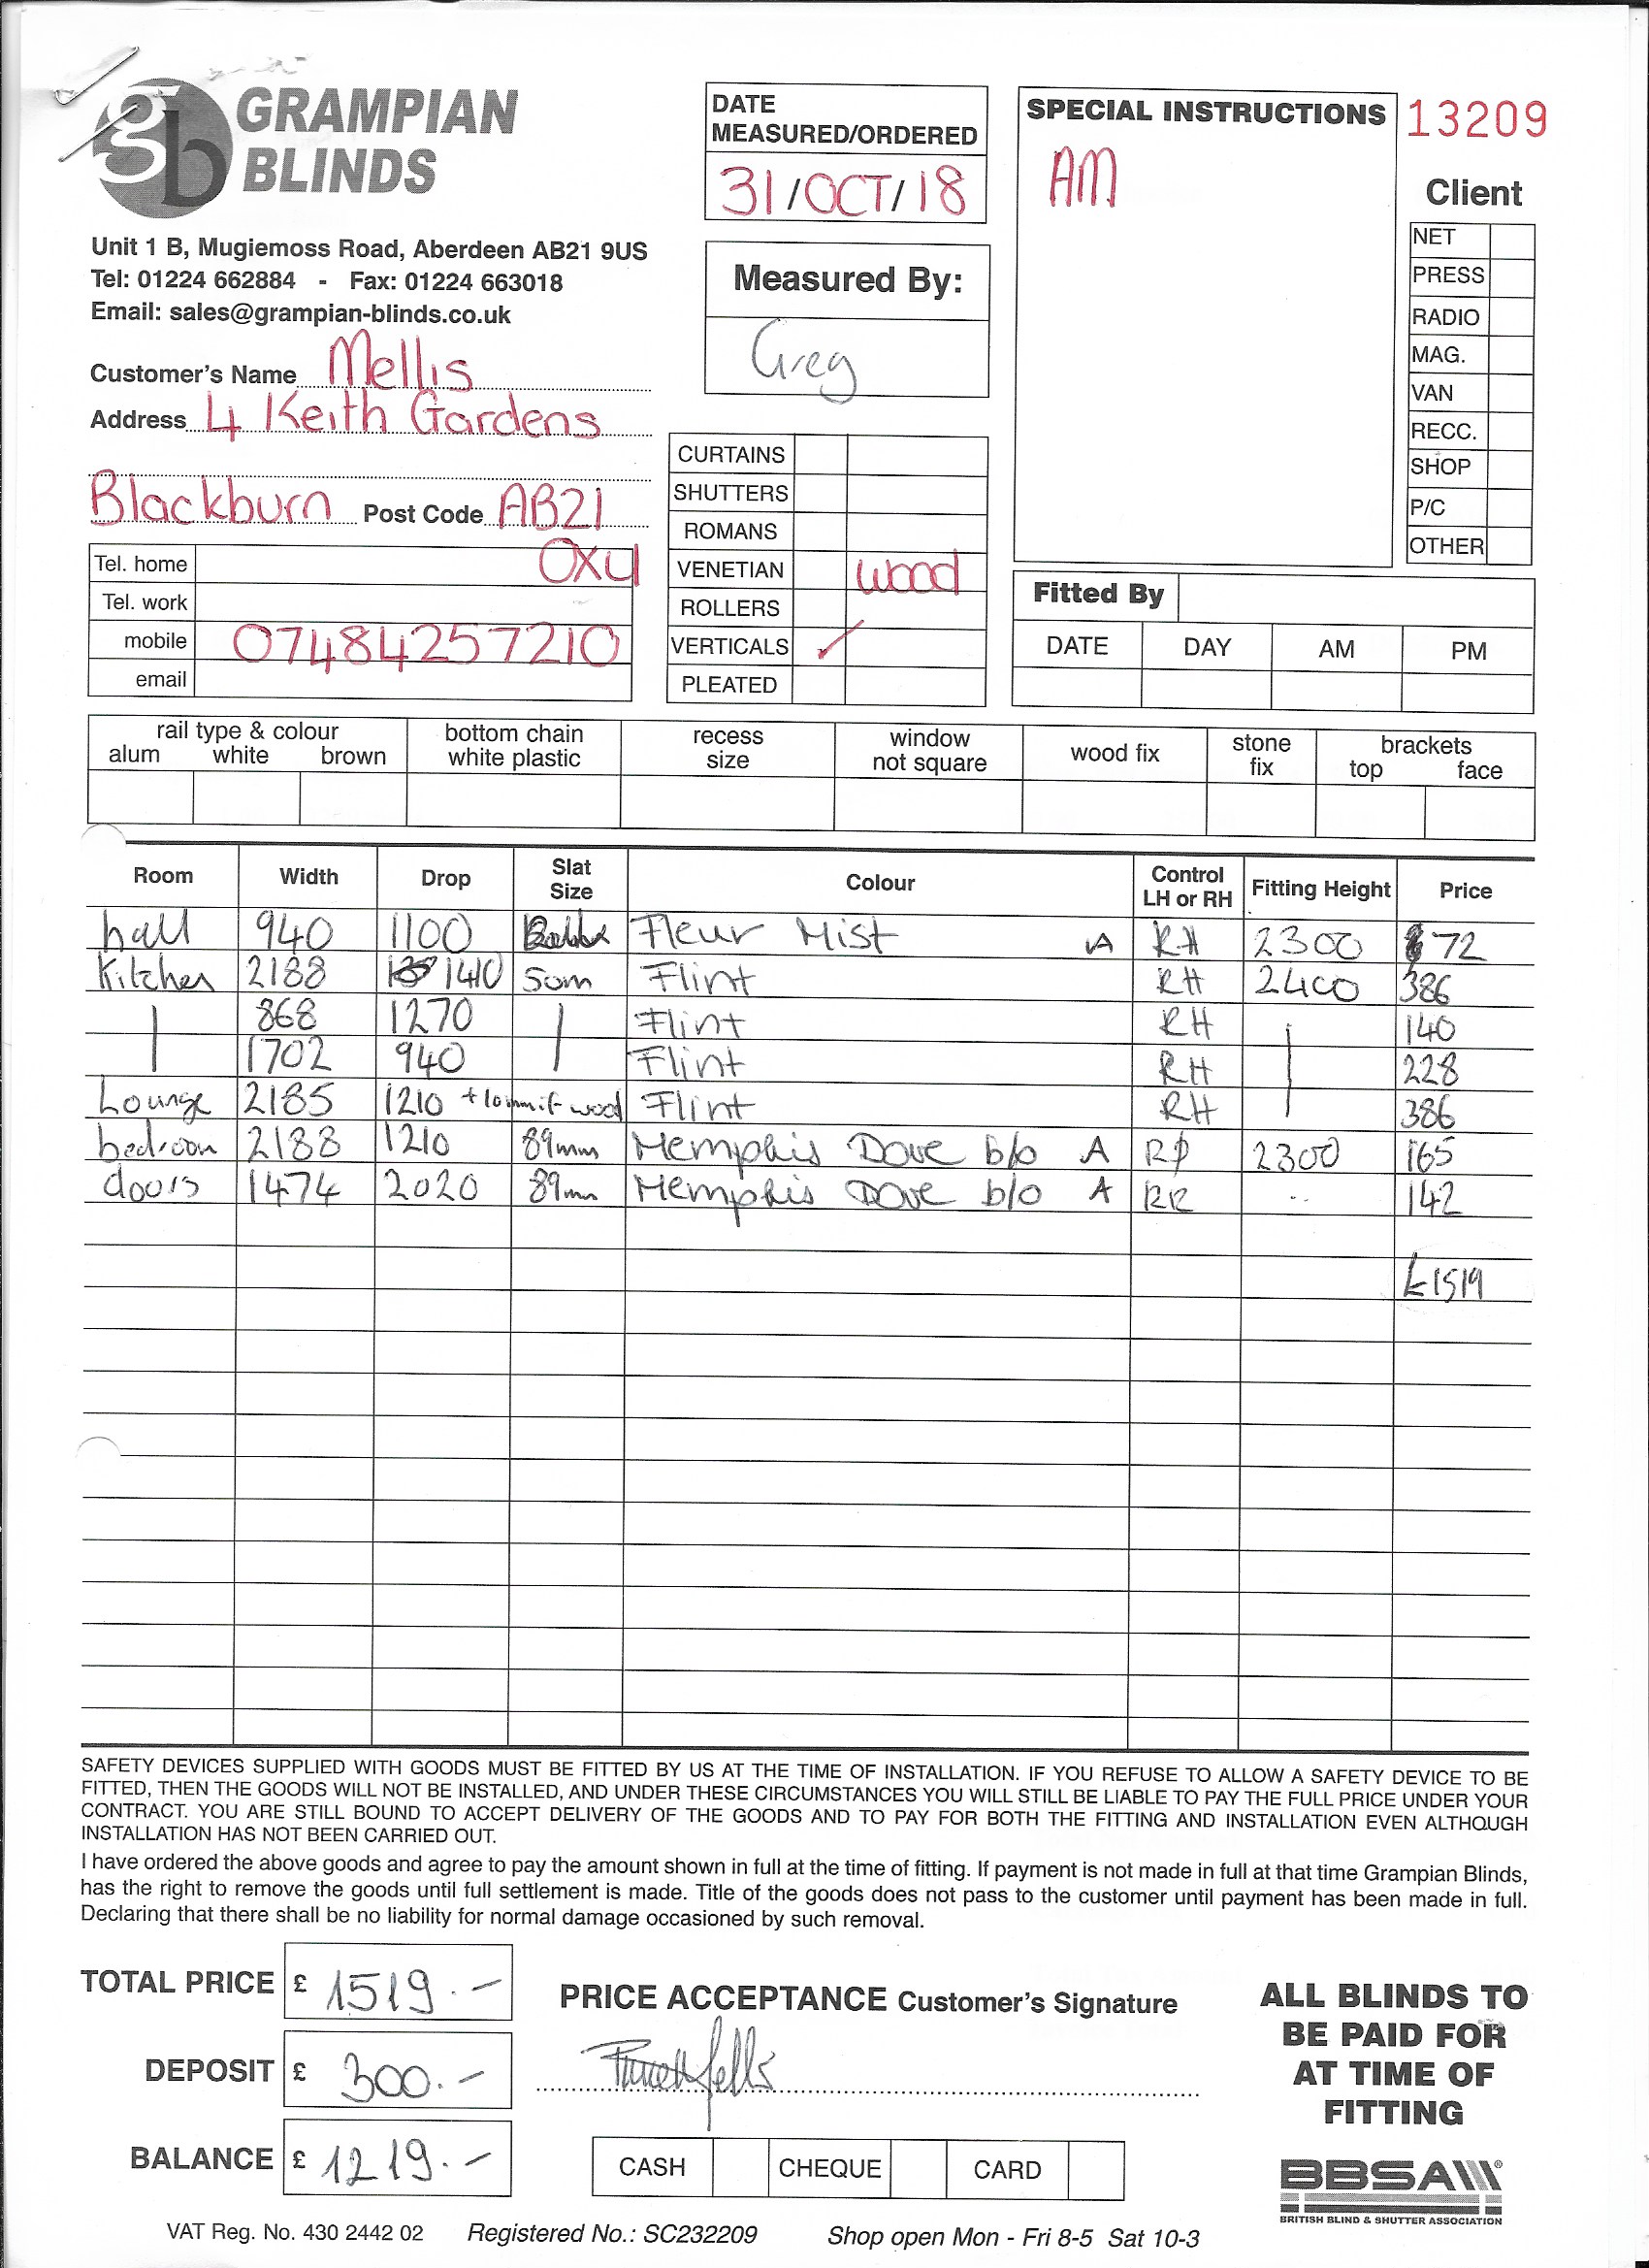 gb GRAMPIAN
BLINDS
Unit 1 B, Mugiemoss Road, Aberdeen AB21 9US
Tel: 01224 662884 - Fax: 01224 663018
Email: sales@grampian-blinds.co.uk
Customer's Name Mellis
Address 4 Keith Gardens
Blackburn Post Code AB21
0XU
Tel. home
Tel. work
mobile 07484257210
email
DATE
MEASURED/ORDERED
31/OCT/18
Measured By:
Greg
CURTAINS
SHUTTERS
ROMANS
VENETIAN wood
ROLLERS
VERTICALS ✓
PLEATED
SPECIAL INSTRUCTIONS
AM
13209
Client
NET
PRESS
RADIO
MAG.
VAN
RECC.
SHOP
P/C
OTHER
Fitted By
DATE DAY AM PM
rail type & colour
alum white brown
bottom chain
white plastic
recess
size
window
not square
wood fix
stone
fix
brackets
top face
Room Width Drop Slat Size Colour Control LH or RH Fitting Height Price
hall 940 1100 Fleur Mist A RH 2300 72
Kitchen 2188 1410 50m Flint RH 2400 386
868 1270 Flint RH 140
1702 940 Flint RH 228
Lounge 2185 1210 +10mm if wood Flint RH 386
bedroom 2188 1210 89mm Memphis Dove b/o A 2300 165
doors 1474 2020 89mm Memphis Dove b/o A RR 142
£1519
SAFETY DEVICES SUPPLIED WITH GOODS MUST BE FITTED BY US AT THE TIME OF INSTALLATION. IF YOU REFUSE TO ALLOW A SAFETY DEVICE TO BE
FITTED, THEN THE GOODS WILL NOT BE INSTALLED, AND UNDER THESE CIRCUMSTANCES YOU WILL STILL BE LIABLE TO PAY THE FULL PRICE UNDER YOUR
CONTRACT. YOU ARE STILL BOUND TO ACCEPT DELIVERY OF THE GOODS AND TO PAY FOR BOTH THE FITTING AND INSTALLATION EVEN ALTHOUGH
INSTALLATION HAS NOT BEEN CARRIED OUT.
I have ordered the above goods and agree to pay the amount shown in full at the time of fitting. If payment is not made in full at that time Grampian Blinds,
has the right to remove the goods until full settlement is made. Title of the goods does not pass to the customer until payment has been made in full.
Declaring that there shall be no liability for normal damage occasioned by such removal.
TOTAL PRICE £ 1519.-
DEPOSIT £ 300.-
BALANCE £ 1219.-
PRICE ACCEPTANCE Customer's Signature
CASH CHEQUE CARD
ALL BLINDS TO
BE PAID FOR
AT TIME OF
FITTING
BBSA
BRITISH BLIND & SHUTTER ASSOCIATION
VAT Reg. No. 430 2442 02 Registered No.: SC232209 Shop open Mon - Fri 8-5 Sat 10-3